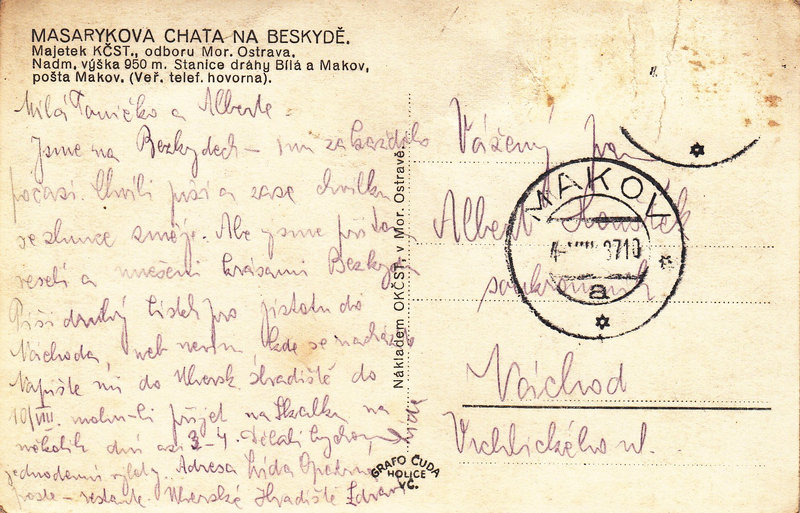 MASARYKOVA CHATA NA BESKYDĚ.
Majetek KČST., odboru Mor. Ostrava.
Nadm. výška 950 m. Stanice dráhy Bílá a Makov,
pošta Makov. (Veř. telef. hovorna).
Milá Taničko a Alberte
Jsme na Bezkydech – za každého
počasí. Chvíli prší a zase chvilku
se slunce směje. Ale jsme při tom
veselí a unešeni krásami Bezkyd
Píši druhý lístek pro jistotu do
Náchoda, neb nevím kde se nacházíte
Napište mi do Uhersk. Hradiště do
10/VIII. mohu-li přijet na Skalku na
několik dní asi 3-4. Dělali bychom
jednodenní výlety. Adresa Lída
poste-restante. Uherské Hradiště Zdraví
Lída
Nákladem OKČST. v Mor. Ostravě.
GRAFO ČUDA
HOLICE
VČ.
Vážený pan
Albert
soukromník
Náchod
Vrchlického ul.
MAKOV
37 10
a